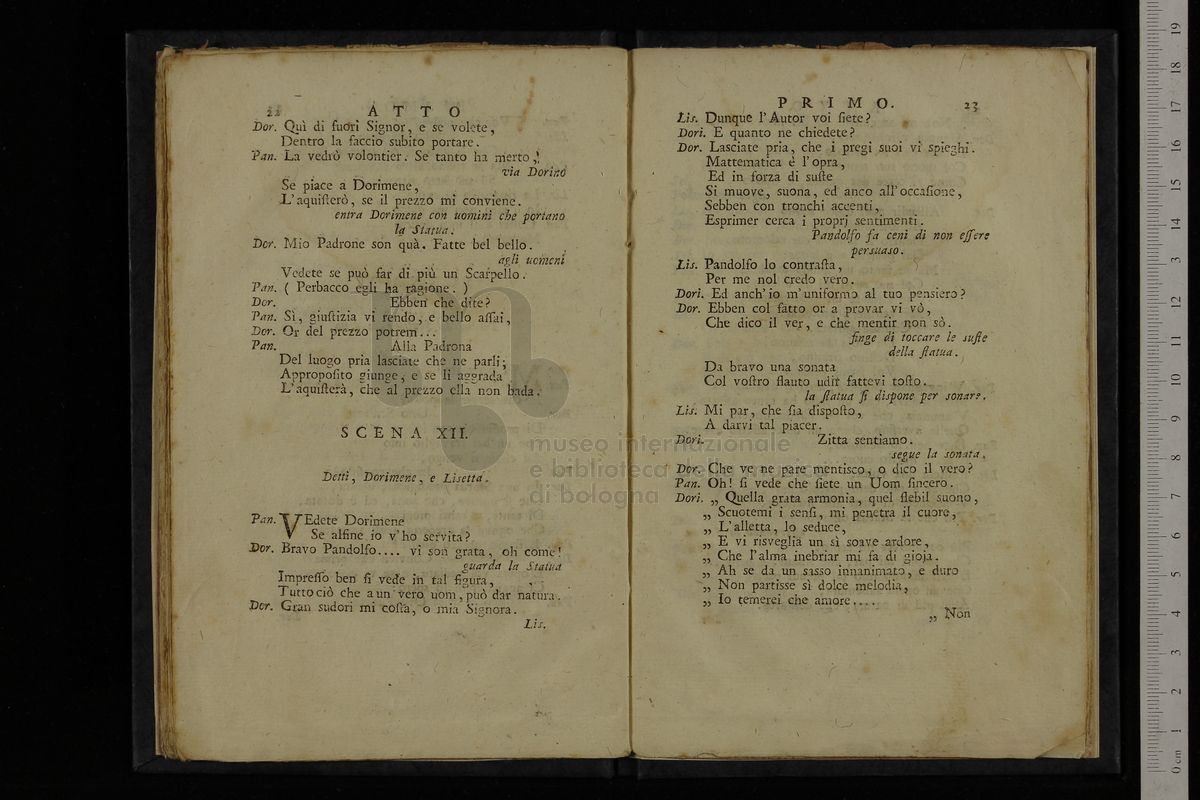 22 ATTO
Dor. Quì di fuori Signor, e se volete,
Dentro la faccio subito portare.
Pan. La vedrò volontier. Se tanto ha merto,
via Dorino
Se piace a Dorimene,
L'aquiſterò, se il prezzo mi conviene.
entra Dorimene con uomini che portano
la Statua.
Dor. Mio Padrone son quà. Fatte bel bello.
agli uomeni
Vedete se può far di più un Scarpello.
Pan. ( Perbacco egli ha ragione. )
Dor. Ebben che dite?
Pan. Sì, giuſtizia vi rendo, e bello aſſai,
Dor. Or del prezzo potrem...
Pan. Alla Padrona
Del luogo pria lasciate che ne parli;
Appropoſito giunge, e se li aggrada
L'aquiſterà, che al prezzo ella non bada.
SCENA XII.
Detti, Dorimene, e Lisetta.
Pan. VEdete Dorimene
Se alfine io v'ho servita?
Dor. Bravo Pandolfo.... vi son grata, oh come!
guarda la Statua
Impreſſo ben ſi vede in tal figura,
Tutto ciò che a un vero uom, può dar natura.
Dor. Gran sudori mi coſta, o mia Signora.
Lis.
PRIMO. 23
Lis. Dunque l'Autor voi ſiete?
Dori. E quanto ne chiedete?
Dor. Lasciate pria, che i pregi suoi vi spieghi.
Mattematica è l'opra,
Ed in forza di suſte
Si muove, suona, ed anco all'occaſione,
Sebben con tronchi accenti,
Esprimer cerca i proprj sentimenti.
Pandolfo fa ceni di non eſſere
persuaso.
Lis. Pandolfo lo contraſta,
Per me nol credo vero.
Dori. Ed anch'io m'uniformo al tuo pensiero?
Dor. Ebben col fatto or a provar vi vò,
Che dico il ver, e che mentir non sò.
finge di toccare le suſte
della ſtatua.
Da bravo una sonata
Col voſtro flauto udir fattevi toſto.
la ſtatua ſi dispone per sonare.
Lis. Mi par, che ſia dispoſto,
A darvi tal piacer.
Dori. Zitta sentiamo.
segue la sonata.
Dor. Che ve ne pare mentisco, o dico il vero?
Pan. Oh! ſi vede che ſiete un Uom ſincero.
Dori. „ Quella grata armonia, quel flebil suono,
„ Scuotemi i senſi, mi penetra il cuore,
„ L'alletta, lo seduce,
„ E vi risveglia un sì soave ardore,
„ Che l'alma inebriar mi fa di gioja.
„ Ah se da un sasso innanimato, e duro
„ Non partisse sì dolce melodia,
„ Io temerei che amore....
„ Non
museo internazionale
e biblioteca della musica
di bologna
0 cm 1 2 3 4 5 6 7 8 9 10 11 12 13 14 15 16 17 18 19